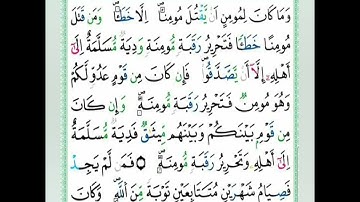 وَمَا كَانَ لِمُومِنٍ اَنْ يَّقْتُلَ مُومِناً اِلَّا خَطَـٔاً وَمَن قَتَلَ
مُومِناً خَطَـٔاً فَتَحْرِيرُ رَقَبَةٍ مُّومِنَةٍ وَدِيَةٌ مُّسَلَّمَةٌ اِلَىٰٓ
أَهْلِهِۦٓ إِلَّآ أَنْ يَّصَّدَّقُواْ فَإِن كَانَ مِن قَوْمٍ عَدُوٍّ لَّكُمْ
وَهُوَ مُومِنٌ فَتَحْرِيرُ رَقَبَةٍ مُّومِنَةٍ وَإِن كَانَ
مِن قَوْمِۭ بَيْنَكُمْ وَبَيْنَهُم مِّيثَٰقٌ فَدِيَةٌ مُّسَلَّمَةٌ
اِلَىٰٓ أَهْلِهِۦ وَتَحْرِيرُ رَقَبَةٍ مُّومِنَةٍ فَمَن لَّمْ يَجِدْ
فَصِيَامُ شَهْرَيْنِ مُتَتَابِعَيْنِ تَوْبَةً مِّنَ اَللَّهِ وَكَانَ